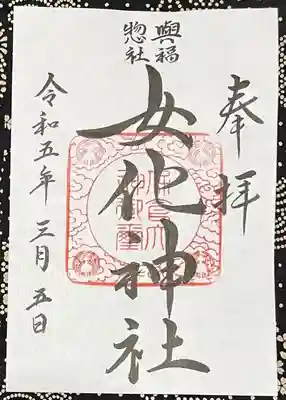 奉拝
與福
惣社
女化神社
令和五年 三月 五日